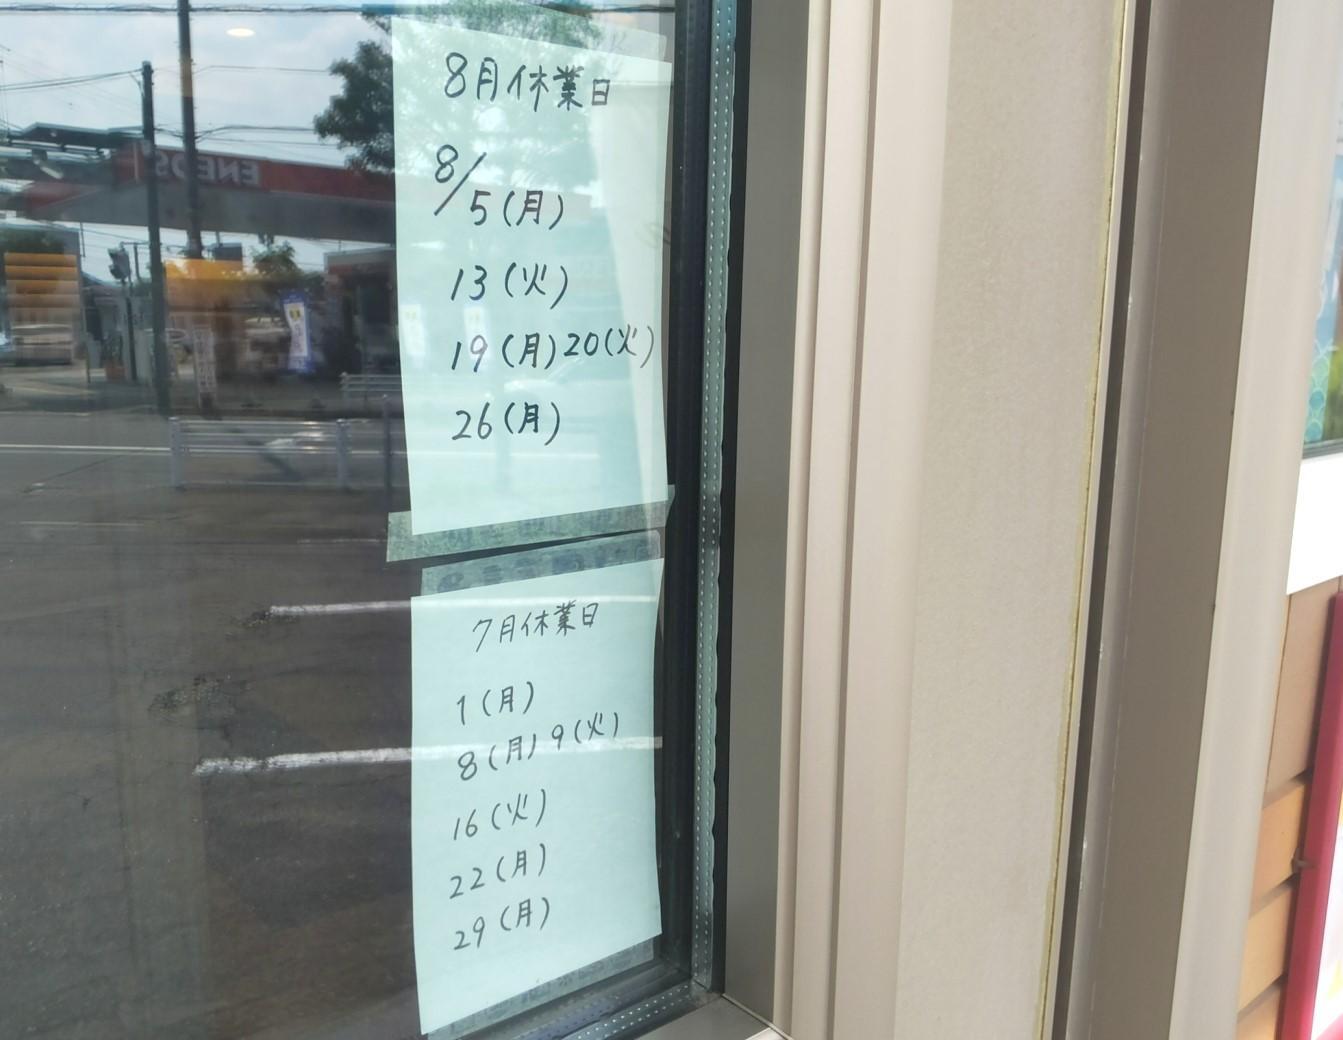 8月休業日
8/5(月)
13(火)
19(月)20(火)
26(月)
7月休業日
1(月)
8(月)9(火)
16(火)
22(月)
29(月)
ENEOS